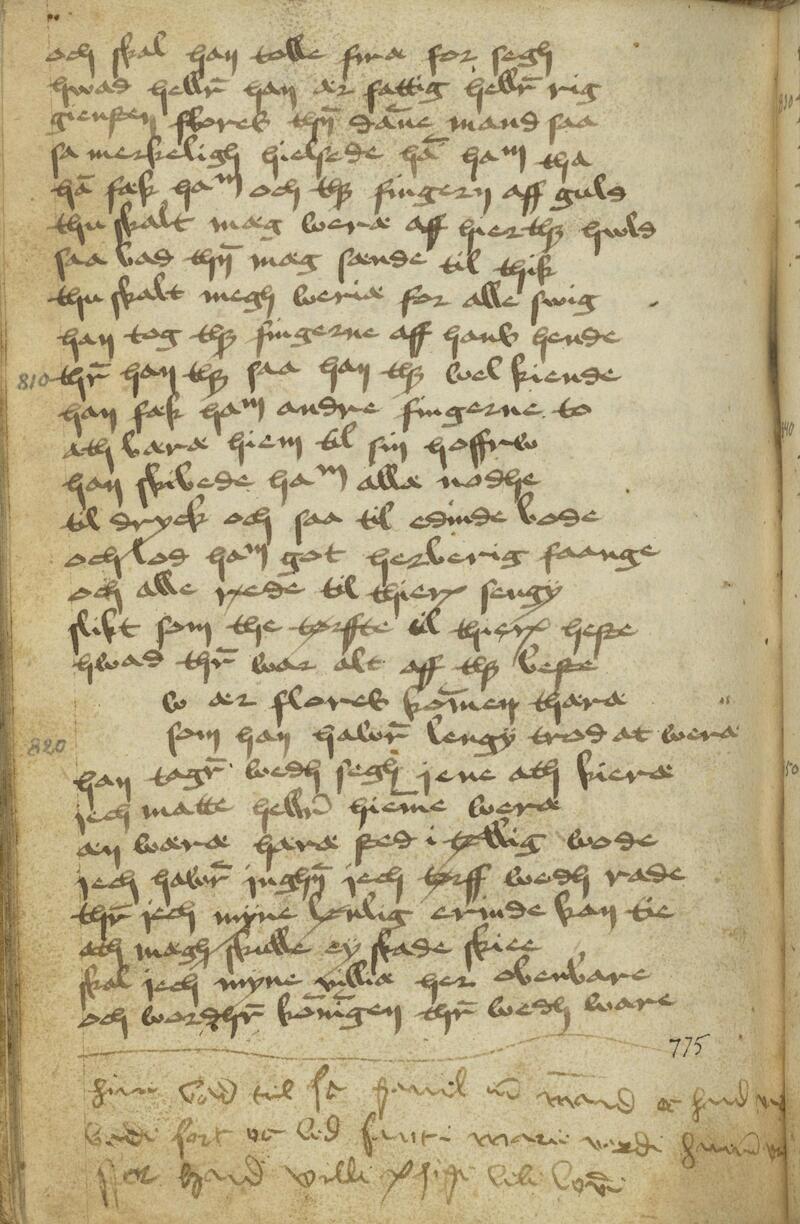 och skal han tolle sinæ for segh
hwad hellr̄ han ær fattig hellr̄ rig
giensten flores thn̄ dāne mand saa
sa merkeligh hielsede hā haᵐ tha
hā fæk haᵐ och thꝫ fingern aff guld
thu skalt mæg weræ aff hierthꝫ hwld
saa bad thn̄ mæg sænde til thik
thu skalt megh weriæ for alle swig
han tog thꝫ fingerne aff hans hende
810 thr̄ han thꝫ saa han thꝫ wel kiende
han fæk haᵐ andre fingerne to
ath bæræ hiem til sin hoffrw
han skibede haᵐ allæ nodhe
til dryck och saa til edinde bode
och lod haᵐ got herberig faange
och alle rede til thieræ sengy
slikt som the tørffte til thieræ heste
hwad thr̄ war alt aff thꝫ beste
w ær flores kom̄en thæræ
820 som han hawr̄ lengy trod at weræ
han tagr̄ wedh segh jene ath kieræ
jech matte hellr̄ hiem̄e weræ
æn wæræ hæræ sted i tøllig wode
jech hawr̄ inghn̄ jech tørff wedh rade
thr̄ jech myne lønlig erinde kan tie
ath mægh skulle ey skade skiee
skal jech myne williæ her obenbare
och wordhr̄ kon̄ī̄gen thr̄ wedh ware
775
til